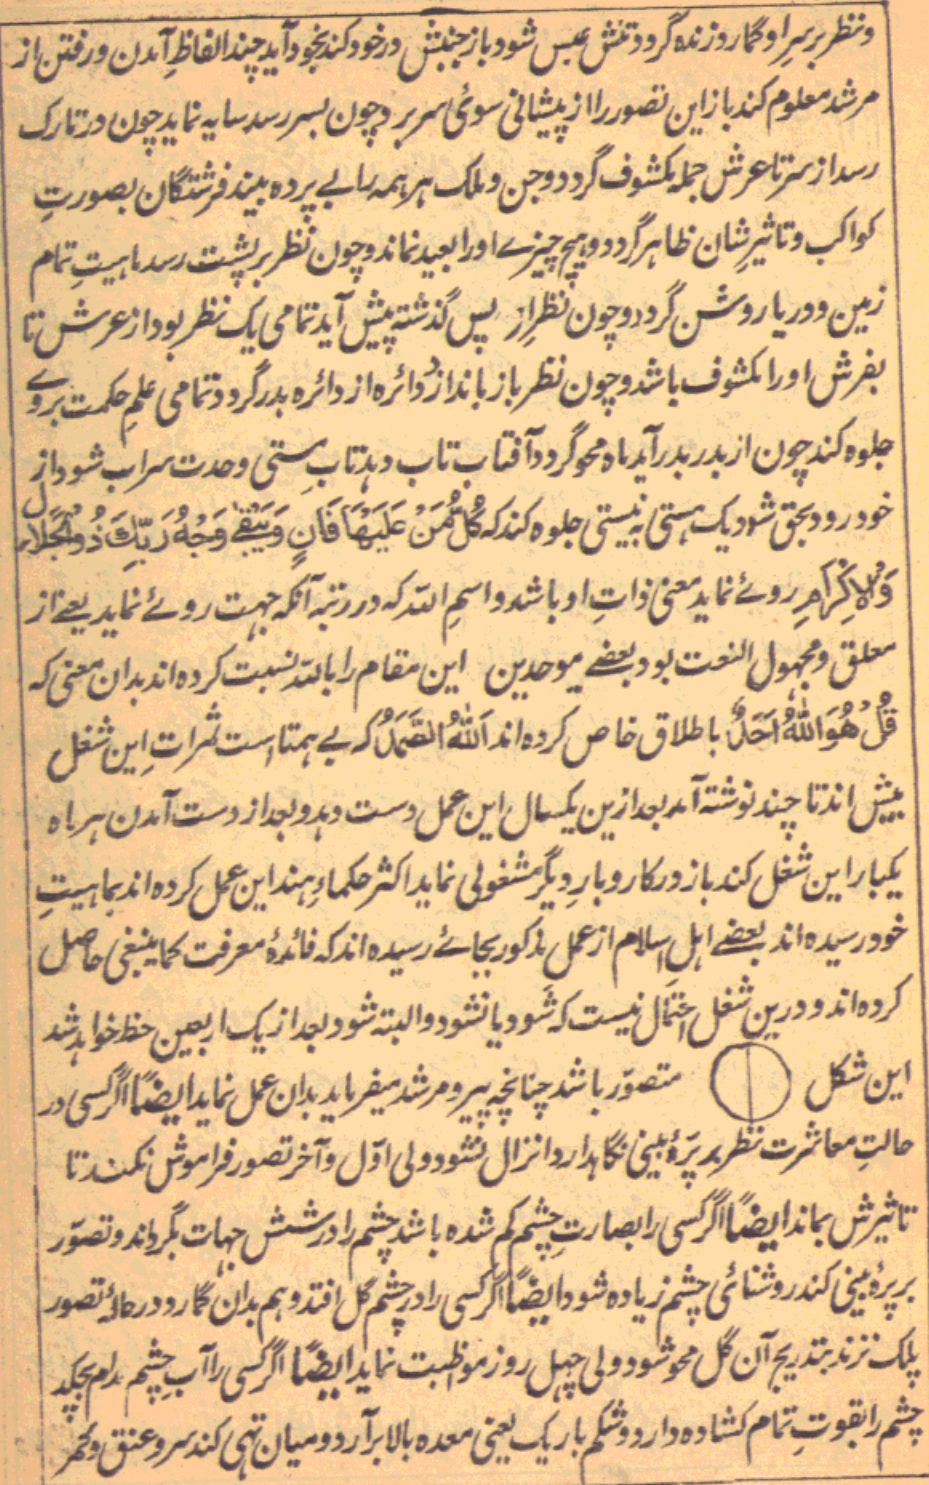 ونظر بر سر او گمارد زنده گردد تنش عبس شود باز جنبش در خود کند بخود آید چند الفاظ آمدن و رفتن از
مرشد معلوم کند باز این تصور را از پیشانی سوئ سر برد چون بسر رسد سایه نماید چون در تارک
رسد از سر تا عرش جمله مکشوف گردد و جن و ملک هر همه را بے پرده بیند فرشتگان بصورتِ
کواکب و تاثیرِ شان ظاهر گردد و هیچ چیزے اورا بعید نماند و چون نظر بر پشت رسد ماهیتِ تمام
زمین و دریا روشن گردد و چون نظر از پس گذشته پیش آید تمامی یک نظر بود از عرش تا
بفرش اورا مکشوف باشد و چون نظر باز باندازد دائره از دائره بدر گردد تمامی علمِ حکمت بروے
جلوه کند چون از بدر بدر آید ماه محو گردد آفتاب تاب دهد تابِ هستی وحدت سراب شود از
خود رود بحق شود یک هستی به نیستی جلوه کند که كُلُّ مَنْ عَلَيْهَا فَانٍ وَّيَبْقٰى وَجْهُ رَبِّكَ ذُو الْجَلَالِ
وَالْاِكْرَامِ روئے نماید معنی ذاتِ او باشد و اسمِ الله که در رتبه آنکه جهت روئے نماید یعنے از
معلق و مجهول النعت بود بعضے موحدین این مقام را بالله نسبت کرده اند بدان معنی که
قُلْ هُوَ اللّٰهُ اَحَدٌ باطلاق خاص کرده اند اَللّٰهُ الصَّمَدُ که بے همتا است ثمراتِ این شغل
بیش اند تا چند نوشته آمد بعد ازین یکسال این عمل دست دهد و بعد از دست آمدن هر ماه
یکبار این شغل کند باز در کار و بارِ دیگر مشغولی نماید اکثر حکماءِ هند این عمل کرده اند بماهیتِ
خود رسیده اند بعضے اهلِ اسلام از عمل مذکور بجائے رسیده اند که فائدهٔ معرفت کما ینبغی حاصل
کرده اند و درین شغل احتمال نیست که شود یا نشود و البته شود بعد از یک اربعین حظ خواهد شد
این شکل متصوّر باشد چنانچه پیر و مرشد میفرماید بدان عمل نماید ایضًا اگر کسی در
حالتِ معاشرت نظر بر پرّهٔ بینی نگاهدارد انزال نشود ولی اوّل و آخر تصور فراموش نکند تا
تاثیرش بماند ایضًا اگر کسی را بصارتِ چشم کم شده باشد چشم را در شش جهات بگرداند و تصوّر
بر پرهٔ بینی کند روشنائی چشم زیاده شود ایضًا اگر کسی را در چشم گل افتد و هم بدان گمارد در حالهٔ تصور
پلک نزند بتدریج آن گل محو شود ولی چهل روز مواظبت نماید ایضًا اگر کسی را آبِ چشم مدام بچکد
چشم را بقوتِ تمام کشاده دارد و شکم باریک یعنی معده بالا برآرد و میان تهی کند سر و عنق و کمر